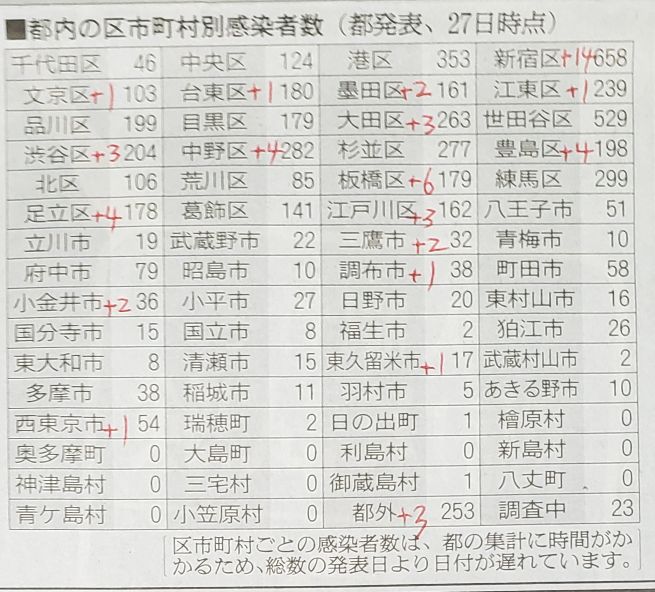 ■都内の区市町村別感染者数（都発表、27日時点）
千代田区 46 中央区 124 港区 353 新宿区+14 658
文京区+1 103 台東区+1 180 墨田区+2 161 江東区+1 239
品川区 199 目黒区 179 大田区+3 263 世田谷区 529
渋谷区+3 204 中野区+4 282 杉並区 277 豊島区+4 198
北区 106 荒川区 85 板橋区+6 179 練馬区 299
足立区+4 178 葛飾区 141 江戸川区+3 162 八王子市 51
立川市 19 武蔵野市 22 三鷹市+2 32 青梅市 10
府中市 79 昭島市 10 調布市+1 38 町田市 58
小金井市+2 36 小平市 27 日野市 20 東村山市 16
国分寺市 15 国立市 8 福生市 2 狛江市 26
東大和市 8 清瀬市 15 東久留米市+1 17 武蔵村山市 2
多摩市 38 稲城市 11 羽村市 5 あきる野市 10
西東京市+1 54 瑞穂町 2 日の出町 1 檜原村 0
奥多摩町 0 大島町 0 利島村 0 新島村 0
神津島村 0 三宅村 0 御蔵島村 1 八丈町 0
青ケ島村 0 小笠原村 0 都外+3 253 調査中 23
区市町村ごとの感染者数は、都の集計に時間がか
かるため、総数の発表日より日付が遅れています。